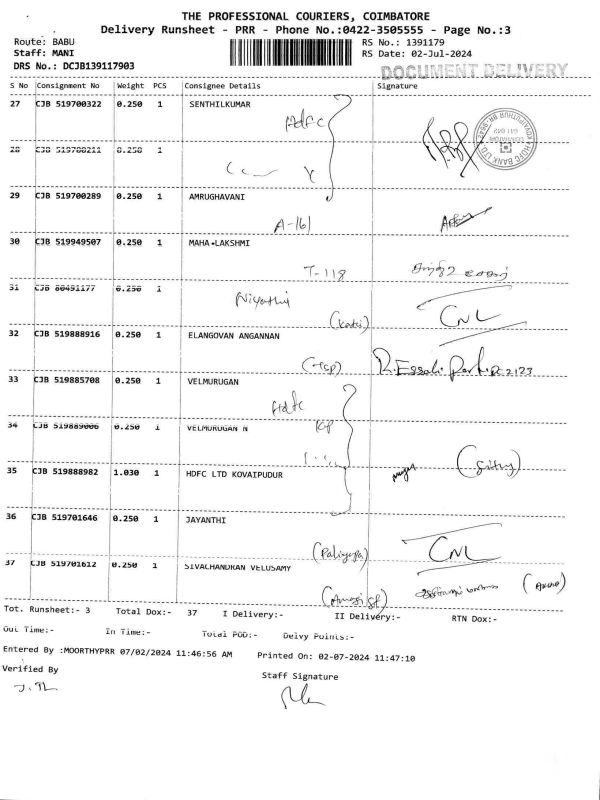 THE PROFESSIONAL COURIERS, COIMBATORE
Delivery Runsheet - PRR - Phone No.:0422-3505555 - Page No.:3
Route: BABU RS No.: 1391179
Staff: MANI RS Date: 02-Jul-2024
DRS No.: DCJB139117903 DOCUMENT DELIVERY
S No Consignment No Weight PCS Consignee Details Signature
27 CJB 519700322 0.250 1 SENTHILKUMAR
Hdfc
28 CJB 519700211 0.250 1
29 CJB 519700289 0.250 1 AMRUGHAVANI
A-161
30 CJB 519949507 0.250 1 MAHA LAKSHMI
T-118
31 CJB 80491177 0.250 1
Niyathi
CNL
32 CJB 519888916 0.250 1 ELANGOVAN ANGANNAN
33 CJB 519885708 0.250 1 VELMURUGAN
Hdfc
34 CJB 519889006 0.250 1 VELMURUGAN N
35 CJB 519888982 1.030 1 HDFC LTD KOVAIPUDUR
36 CJB 519701646 0.250 1 JAYANTHI
CNL
37 CJB 519701612 0.250 1 SIVACHANDRAN VELUSAMY
Tot. Runsheet:- 3 Total Dox:- 37 I Delivery:- II Delivery:- RTN Dox:-
Out Time:- In Time:- Total POD:- Delvy Points:-
Entered By :MOORTHYPRR 07/02/2024 11:46:56 AM Printed On: 02-07-2024 11:47:10
Verified By
Staff Signature